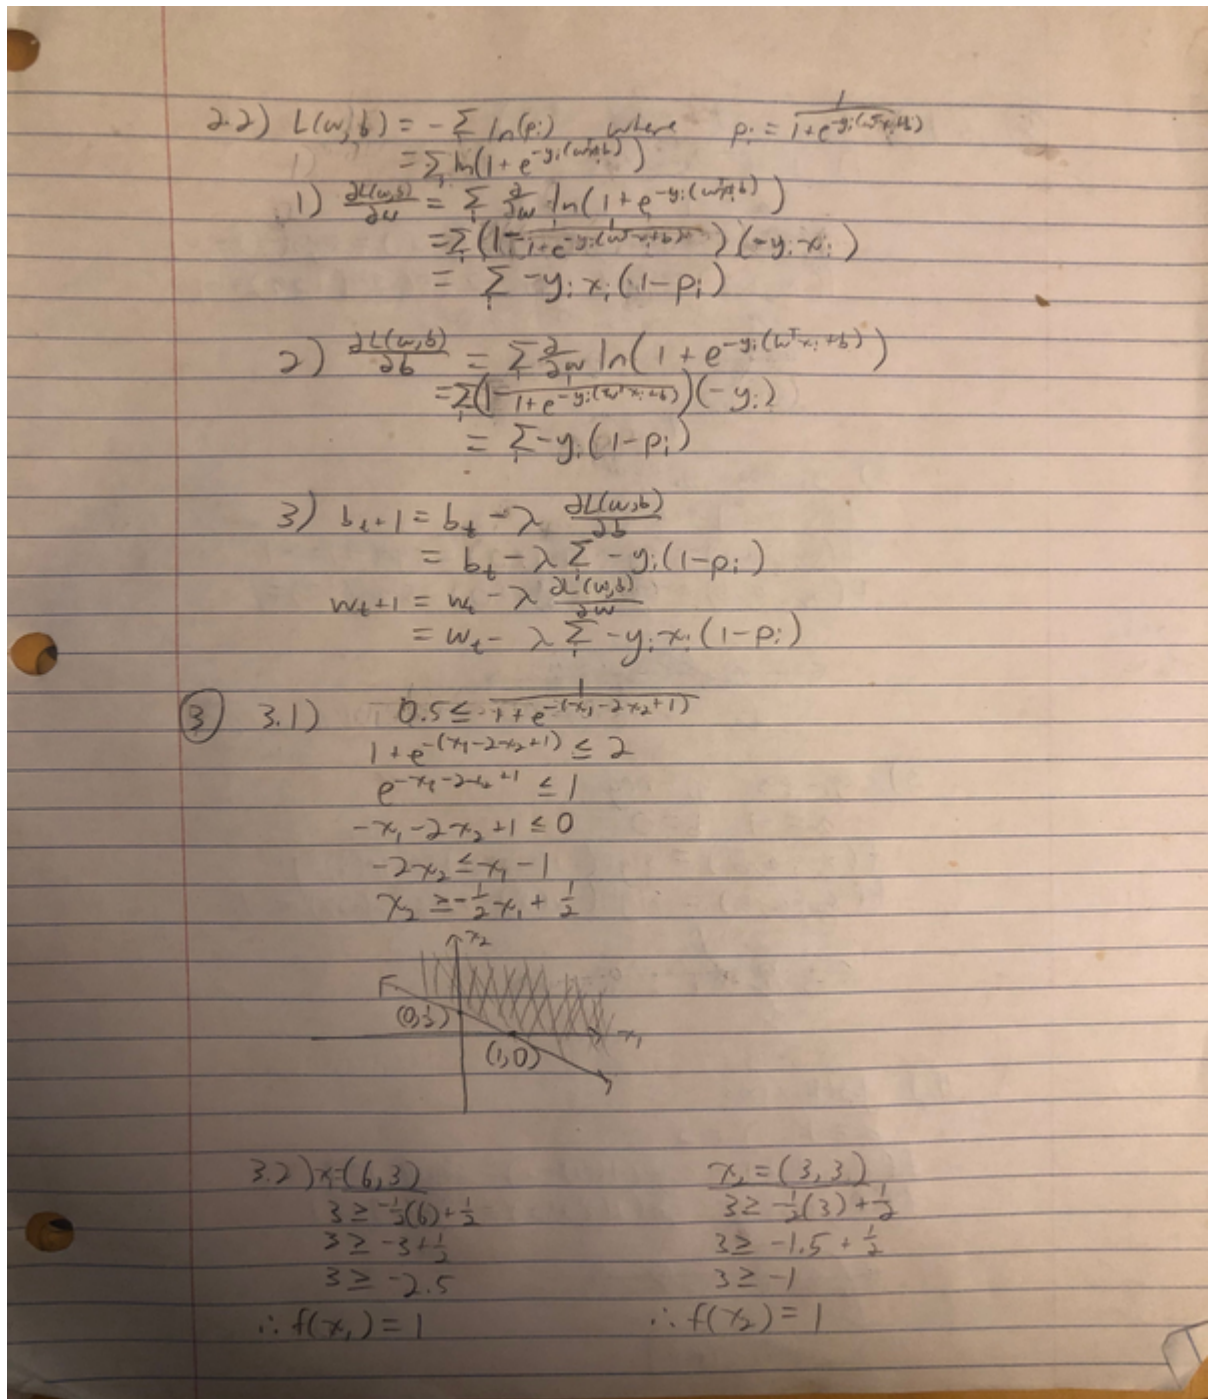 2.2) L(w,b) = -Σ_i ln(p_i) where p_i = 1/(1+e^{-y_i(w^T x_i+b)})
= Σ_i ln(1 + e^{-y_i(w^T x_i+b)})
1) ∂L(w,b)/∂w = Σ_i ∂/∂w ln(1 + e^{-y_i(w^T x_i+b)})
= Σ_i (1 - 1/(1+e^{-y_i(w^T x_i+b)}))(-y_i x_i)
= Σ_i -y_i x_i (1-p_i)
2) ∂L(w,b)/∂b = Σ_i ∂/∂w ln(1 + e^{-y_i(w^T x_i+b)})
= Σ_i (1 - 1/(1+e^{-y_i(w^T x_i+b)}))(-y_i)
= Σ_i -y_i (1-p_i)
3) b_{t+1} = b_t - λ ∂L(w,b)/∂b
= b_t - λ Σ_i -y_i(1-p_i)
w_{t+1} = w_t - λ ∂L(w,b)/∂w
= w_t - λ Σ_i -y_i x_i (1-p_i)
③ 3.1) 0.5 ≤ 1/(1+e^{-(x_1-2x_2+1)})
1 + e^{-(x_1-2x_2+1)} ≤ 2
e^{-x_1-2x_2+1} ≤ 1
-x_1-2x_2+1 ≤ 0
-2x_2 ≤ x_1-1
x_2 ≥ -1/2 x_1 + 1/2
x_2
(0,1/2)
x_1
(1,0)
3.2) x_1=(6,3) x_2=(3,3)
3 ≥ -1/2(6)+1/2 3 ≥ -1/2(3)+1/2
3 ≥ -3+1/2 3 ≥ -1.5+1/2
3 ≥ -2.5 3 ≥ -1
∴ f(x_1) = 1 ∴ f(x_2) = 1